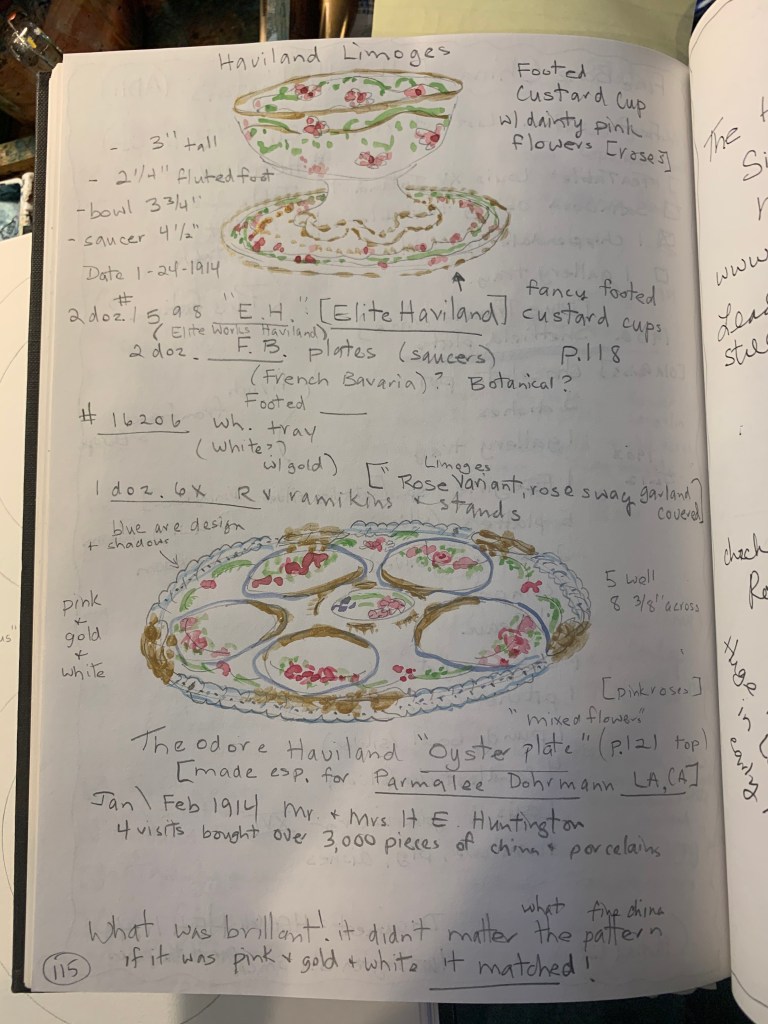 Haviland Limoges
Footed
Custard Cup
w/ dainty pink
flowers [roses]
- 3" tall
- 2 1/4" fluted foot
- bowl 3 3/4"
- saucer 4 1/2"
Date 1-24-1914
2 doz. # 1598 "E.H." [Elite Haviland]
fancy footed
custard cups
(Elite Works Haviland)
2 doz. F. B. plates (saucers) P.118
(French Bavaria)? Botanical?
Footed
# 16206 wh. tray
(white?)
w/ gold)
1 doz. 6X RV ramikins & stands
["Limoges
Rose Variant, rose swag garland
covered]
blue are design
+ shadow
pink
&
gold
&
white
5 well
8 3/8" across
[pink roses]
"mixed flowers"
Theodore Haviland "Oyster plate" (p.121 top)
[made esp. for Parmalee Dohrmann LA, CA]
Jan \ Feb 1914 Mr. & Mrs. H E. Huntington
4 visits bought over 3,000 pieces of china & porcelains
What was brillant! it didn't matter what fine china the pattern
if it was pink & gold & white it matched!
115
The
www
check
huge in